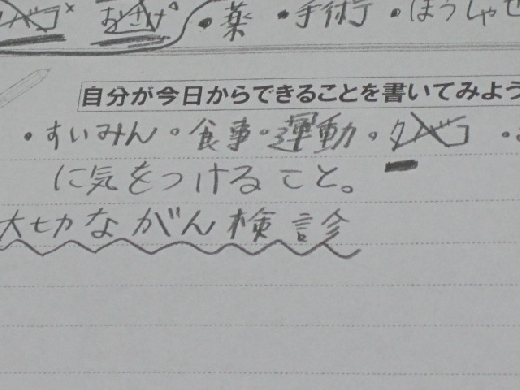 タバコ× おさけ ・薬 ・手術 ・ほうしゃせ
自分が今日からできることを書いてみよう
・すいみん・食事・運動・タバコ・
に気をつけること。
大切ながん検診